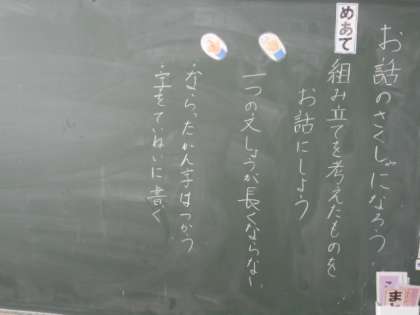 お話のさくしゃになろう
めあて
組み立てを考えたものを
お話にしよう
一つの文しょうが長くならない
・ならったかん字はつかう
・字をていねいに書く
ま